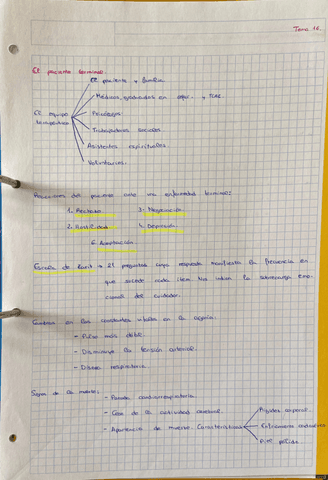 Tema 16.
El paciente terminal.
El paciente y familia
Médicos, graduados en enfer. y TCAE.
El equipo terapéutico
Psicólogos
Trabajadores sociales
Asistentes espirituales.
Voluntarios.
Reacciones del paciente ante una enfermedad terminal:
1. Rechazo. 3. Negociación.
2. Hostilidad. 4. Depresión.
5. Aceptación
Escala de Zarit → 21 preguntas cuya respuesta manifiesta la frecuencia en
que sucede cada item. Nos indica la sobrecarga emo-
cional del cuidador.
Cambios en las constantes vitales en la agonía:
- Pulso más débil.
- Disminuye la tensión arterial.
- Disnea respiratoria.
Signos de la muerte:
- Parada cardiorrespiratoria
- Cese de la actividad cerebral.
- Apariencia de muerte. Características
Rigidez corporal.
Enfriamiento
Piel pálida.